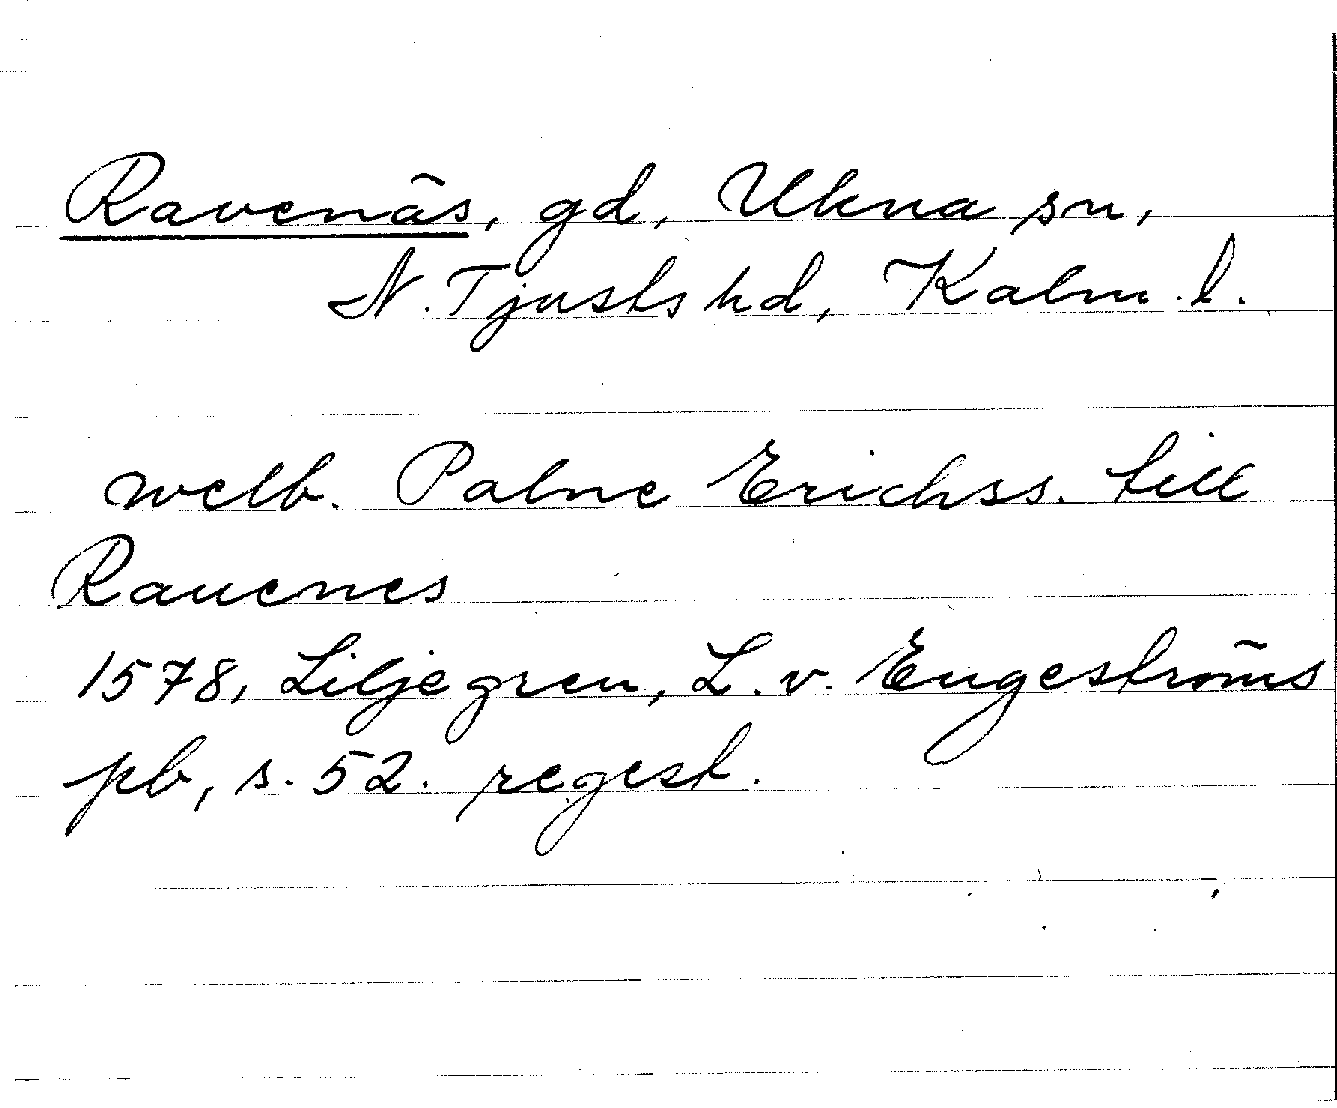 Ravenäs, gd, Ukna sn,
N. Tjusts hd, Kalm. l.
welb. Palne Erichss. till
Rauenes
1578, Liljegren, L. v. Engeströms
pb, s. 52. regest.